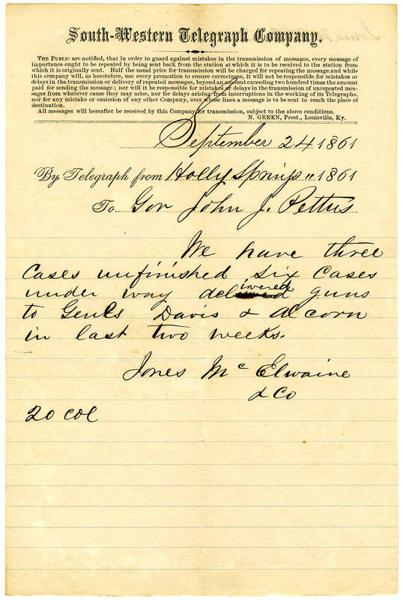 South-Western Telegraph Company.
The Public are notified, that in order to guard against mistakes in the transmission of messages, every message of
importance ought to be repeated by being sent back from the station at which it is to be received to the station from
which it is originally sent. Half the usual price for transmission will be charged for repeating the message, and while
this company will, as heretofore, use every precaution to ensure correctness, it will not be responsible for mistakes or
delays in the transmission or delivery of repeated messages, beyond an amount exceeding two hundred times the amount
paid for sending the message; nor will it be responsible for mistakes or delays in the transmission of unrepeated messages
from whatever cause they may arise, nor for delays arising from interruptions in the working of its Telegraphs,
nor for any mistake or omission of any other Company, over whose lines a message is to be sent to reach the place of
destination.
All messages will hereafter be received by this Company for transmission, subject to the above conditions.
N. GREEN, Prest., Louisville, Ky.
September 24 1861
By Telegraph from Holly Springs 1861
To Gov John J. Pettus
We have three
cases unfinished six cases
under way delivered guns
to Genls Davis & Alcorn
in last two weeks.
Jones McElwaine
& Co
20 col